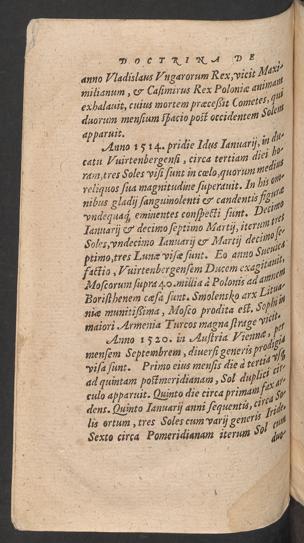 DOCTRINA DE
anno Vladislaus Vngarorum Rex, vicit Maxi-
milianum, & Casimirus Rex Poloniæ animam
exhalauit, cuius mortem præcessit Cometes, qui
duorum mensium spacio post occidentem Solem
apparuit.
Anno 1514. pridie Idus Ianuarij, in du-
catu Vuirtenbergensi, circa tertiam diei ho-
ram, tres Soles visi sunt in cœlo, quorum medius
reliquos sua magnitudine superauit. In his om-
nibus gladij sanguinolenti & candentis figuræ
vndequaq; eminentes conspecti sunt. Decimo
Ianuarij & decimo septimo Martij, iterum tres
Soles, vndecimo Ianuarij & Martij decimo se-
ptimo, tres Lunæ visæ sunt. Eo anno Sueuica
factio, Vuirtenbergensem Ducem exagitauit,
Moscorum supra 40. millia à Polonis ad amnem
Boristhenem cæsa sunt. Smolensko arx Litua-
niæ munitissima, Mosco prodita est. Sophi in
maiori Armenia Turcos magna strage vicit.
Anno 1520. in Austria Viennæ, per
mensem Septembrem, diuersi generis prodigia
visa sunt. Primo eius mensis die à tertia vsq;
ad quintam postmeridianam, Sol duplici cir-
culo apparuit. Quinto die circa primam fax ar-
dens. Quinto Ianuarij anni sequentis, circa So-
lis ortum, tres Soles cum varij generis Iride.
Sexto circa Pomeridianam iterum Sol cum
duo-